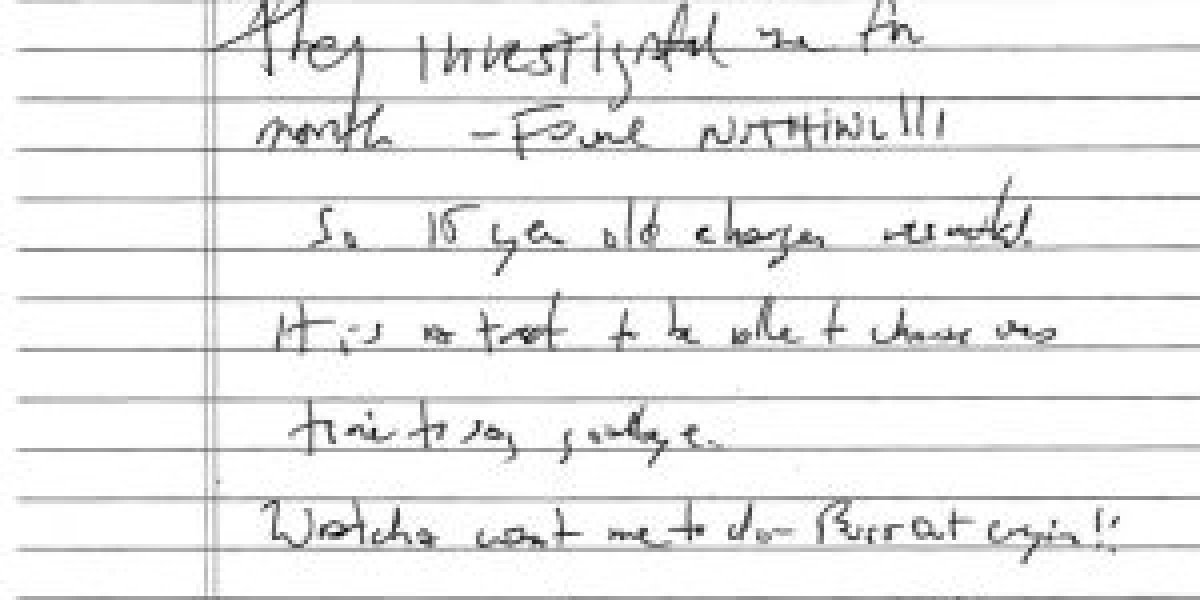 They investigated me for
month - Found NOTHING!!!
So 15 year old charges resulted.
It is a treat to be able to choose one's
time to say goodbye.
Watcha want me to do - Burst out cryin!!